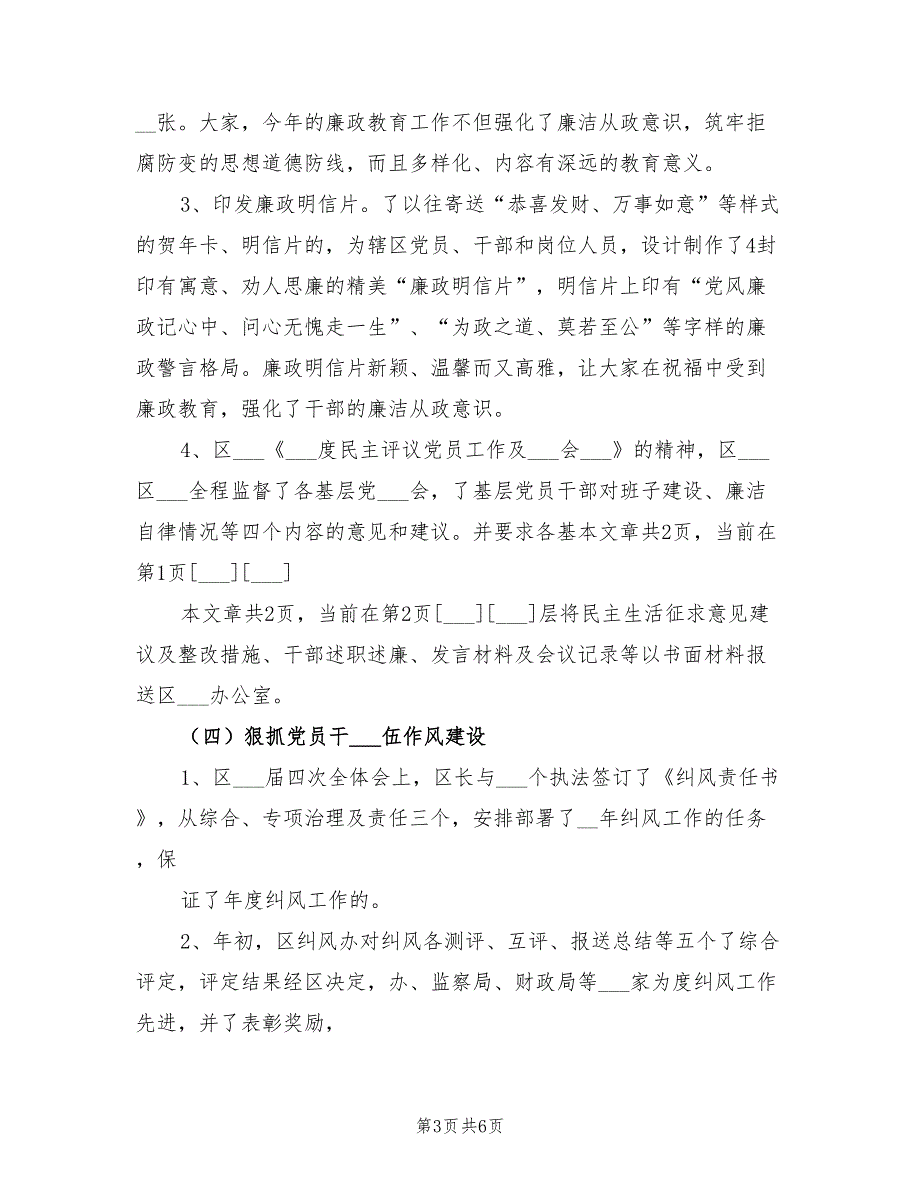 __张。大家，今年的廉政教育工作不但强化了廉洁从政意识，筑牢拒
腐防变的思想道德防线，而且多样化、内容有深远的教育意义。
3、印发廉政明信片。了以往寄送“恭喜发财、万事如意”等样式
的贺年卡、明信片的，为辖区党员、干部和岗位人员，设计制作了4封
印有寓意、劝人思廉的精美“廉政明信片”，明信片上印有“党风廉
政记心中、问心无愧走一生”、“为政之道、莫若至公”等字样的廉
政警言格局。廉政明信片新颖、温馨而又高雅，让大家在祝福中受到
廉政教育，强化了干部的廉洁从政意识。
4、区___《___度民主评议党员工作及___会___》的精神，区___
区___全程监督了各基层党___会，了基层党员干部对班子建设、廉洁
自律情况等四个内容的意见和建议。并要求各基本文章共2页，当前在
第1页[___][___]
本文章共2页，当前在第2页[___][___]层将民主生活征求意见建
议及整改措施、干部述职述廉、发言材料及会议记录等以书面材料报
送区___办公室。
（四）狠抓党员干___伍作风建设
1、区___届四次全体会上，区长与___个执法签订了《纠风责任书
》，从综合、专项治理及责任三个，安排部署了__年纠风工作的任务
，保
证了年度纠风工作的。
2、年初，区纠风办对纠风各测评、互评、报送总结等五个了综合
评定，评定结果经区决定，办、监察局、财政局等___家为度纠风工作
先进，并了表彰奖励，
第3页共6页